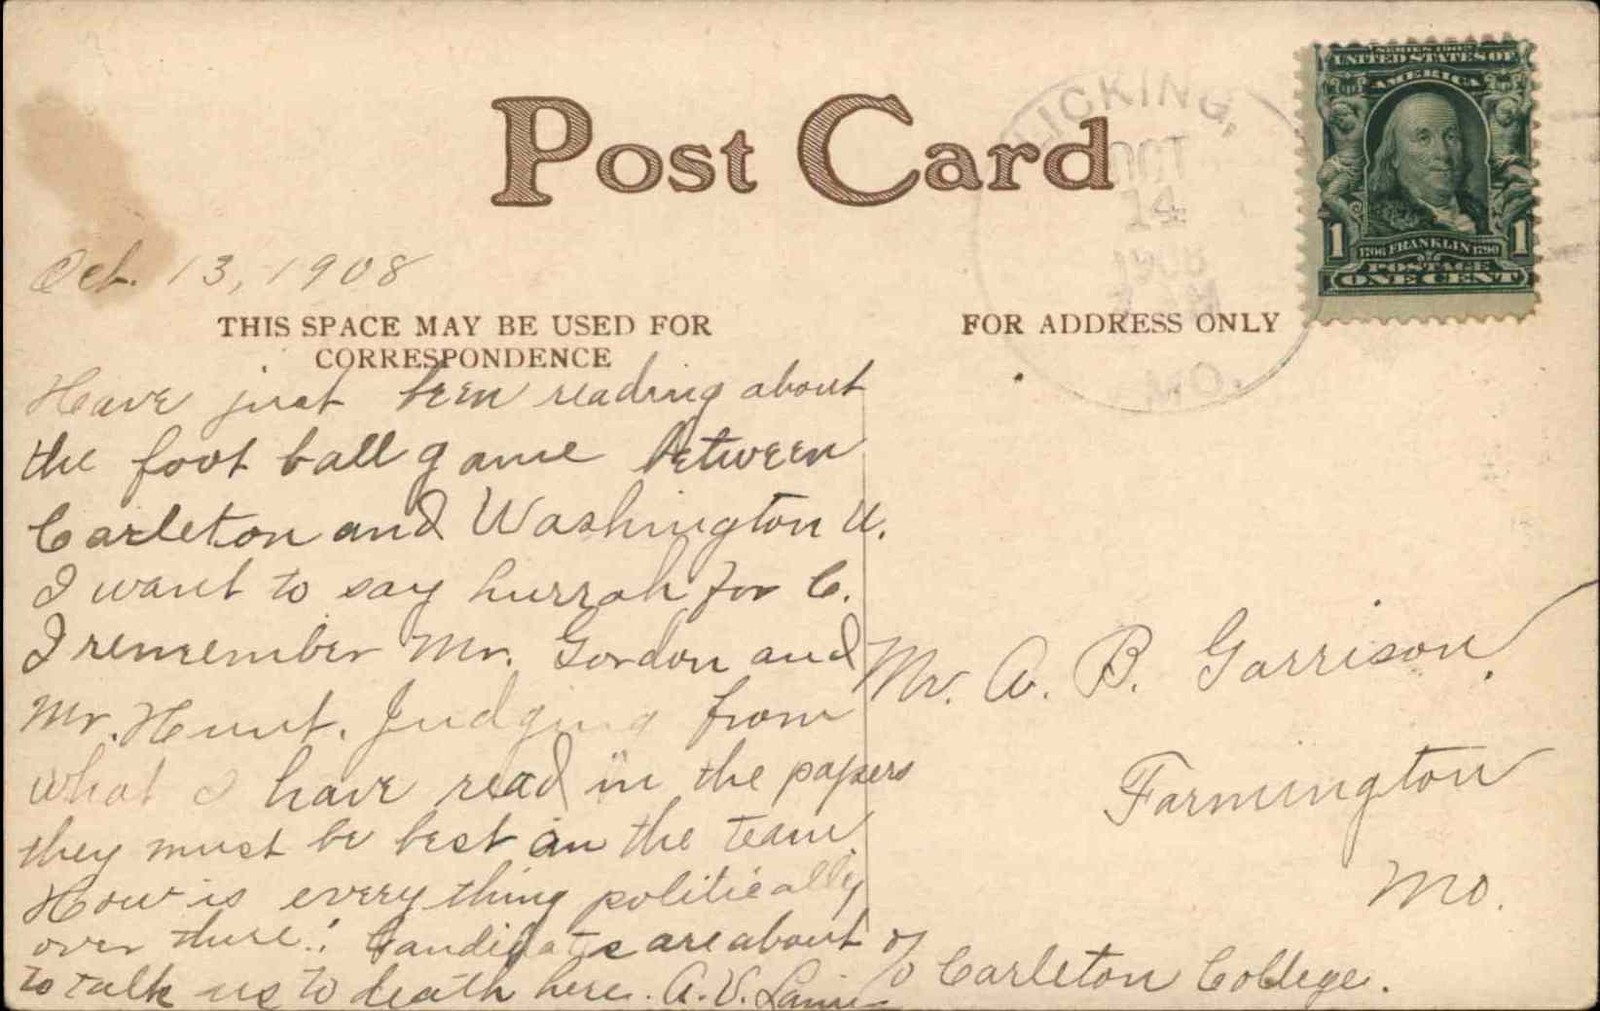 Post Card
LICKING,
OCT
14
1908
MO.
SERIES 1902
UNITED STATES OF
AMERICA
1 1
1706 FRANKLIN 1790
POSTAGE
ONE CENT
Oct. 13, 1908
THIS SPACE MAY BE USED FOR
CORRESPONDENCE
FOR ADDRESS ONLY
Have just been reading about
the foot ball game between
Carleton and Washington U.
I want to say hurrah for C.
I remember Mr. Gordon and
Mr. Hunt. Judging from
what I have read in the papers
they must be best on the team.
How is every thing politically
over there? Candidates are about
to talk us to death here. A. V.
Mr. A. B. Garrison.
Farmington
Mo.
c/o Carleton College.